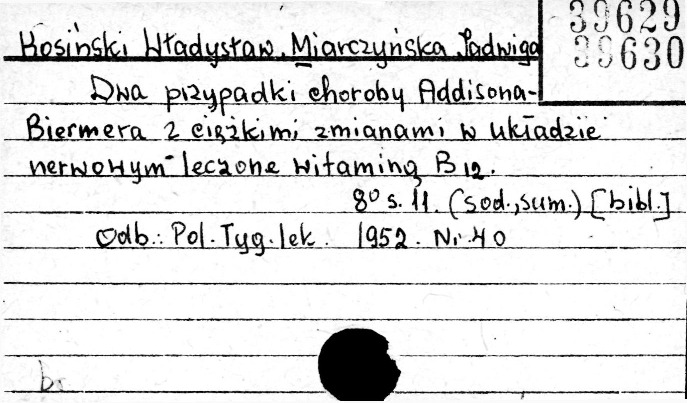 39629
39630
Kosiński Władysław, Miarczyńska Jadwiga
Dwa przypadki choroby Addisona-
Biermera z ciężkimi zmianami w układzie
nerwowym leczone witaminą B12.
8° s. 11. (sod., sum.) [bibl.]
Odb.: Pol. Tyg. lek. 1952. Nr 40
b.